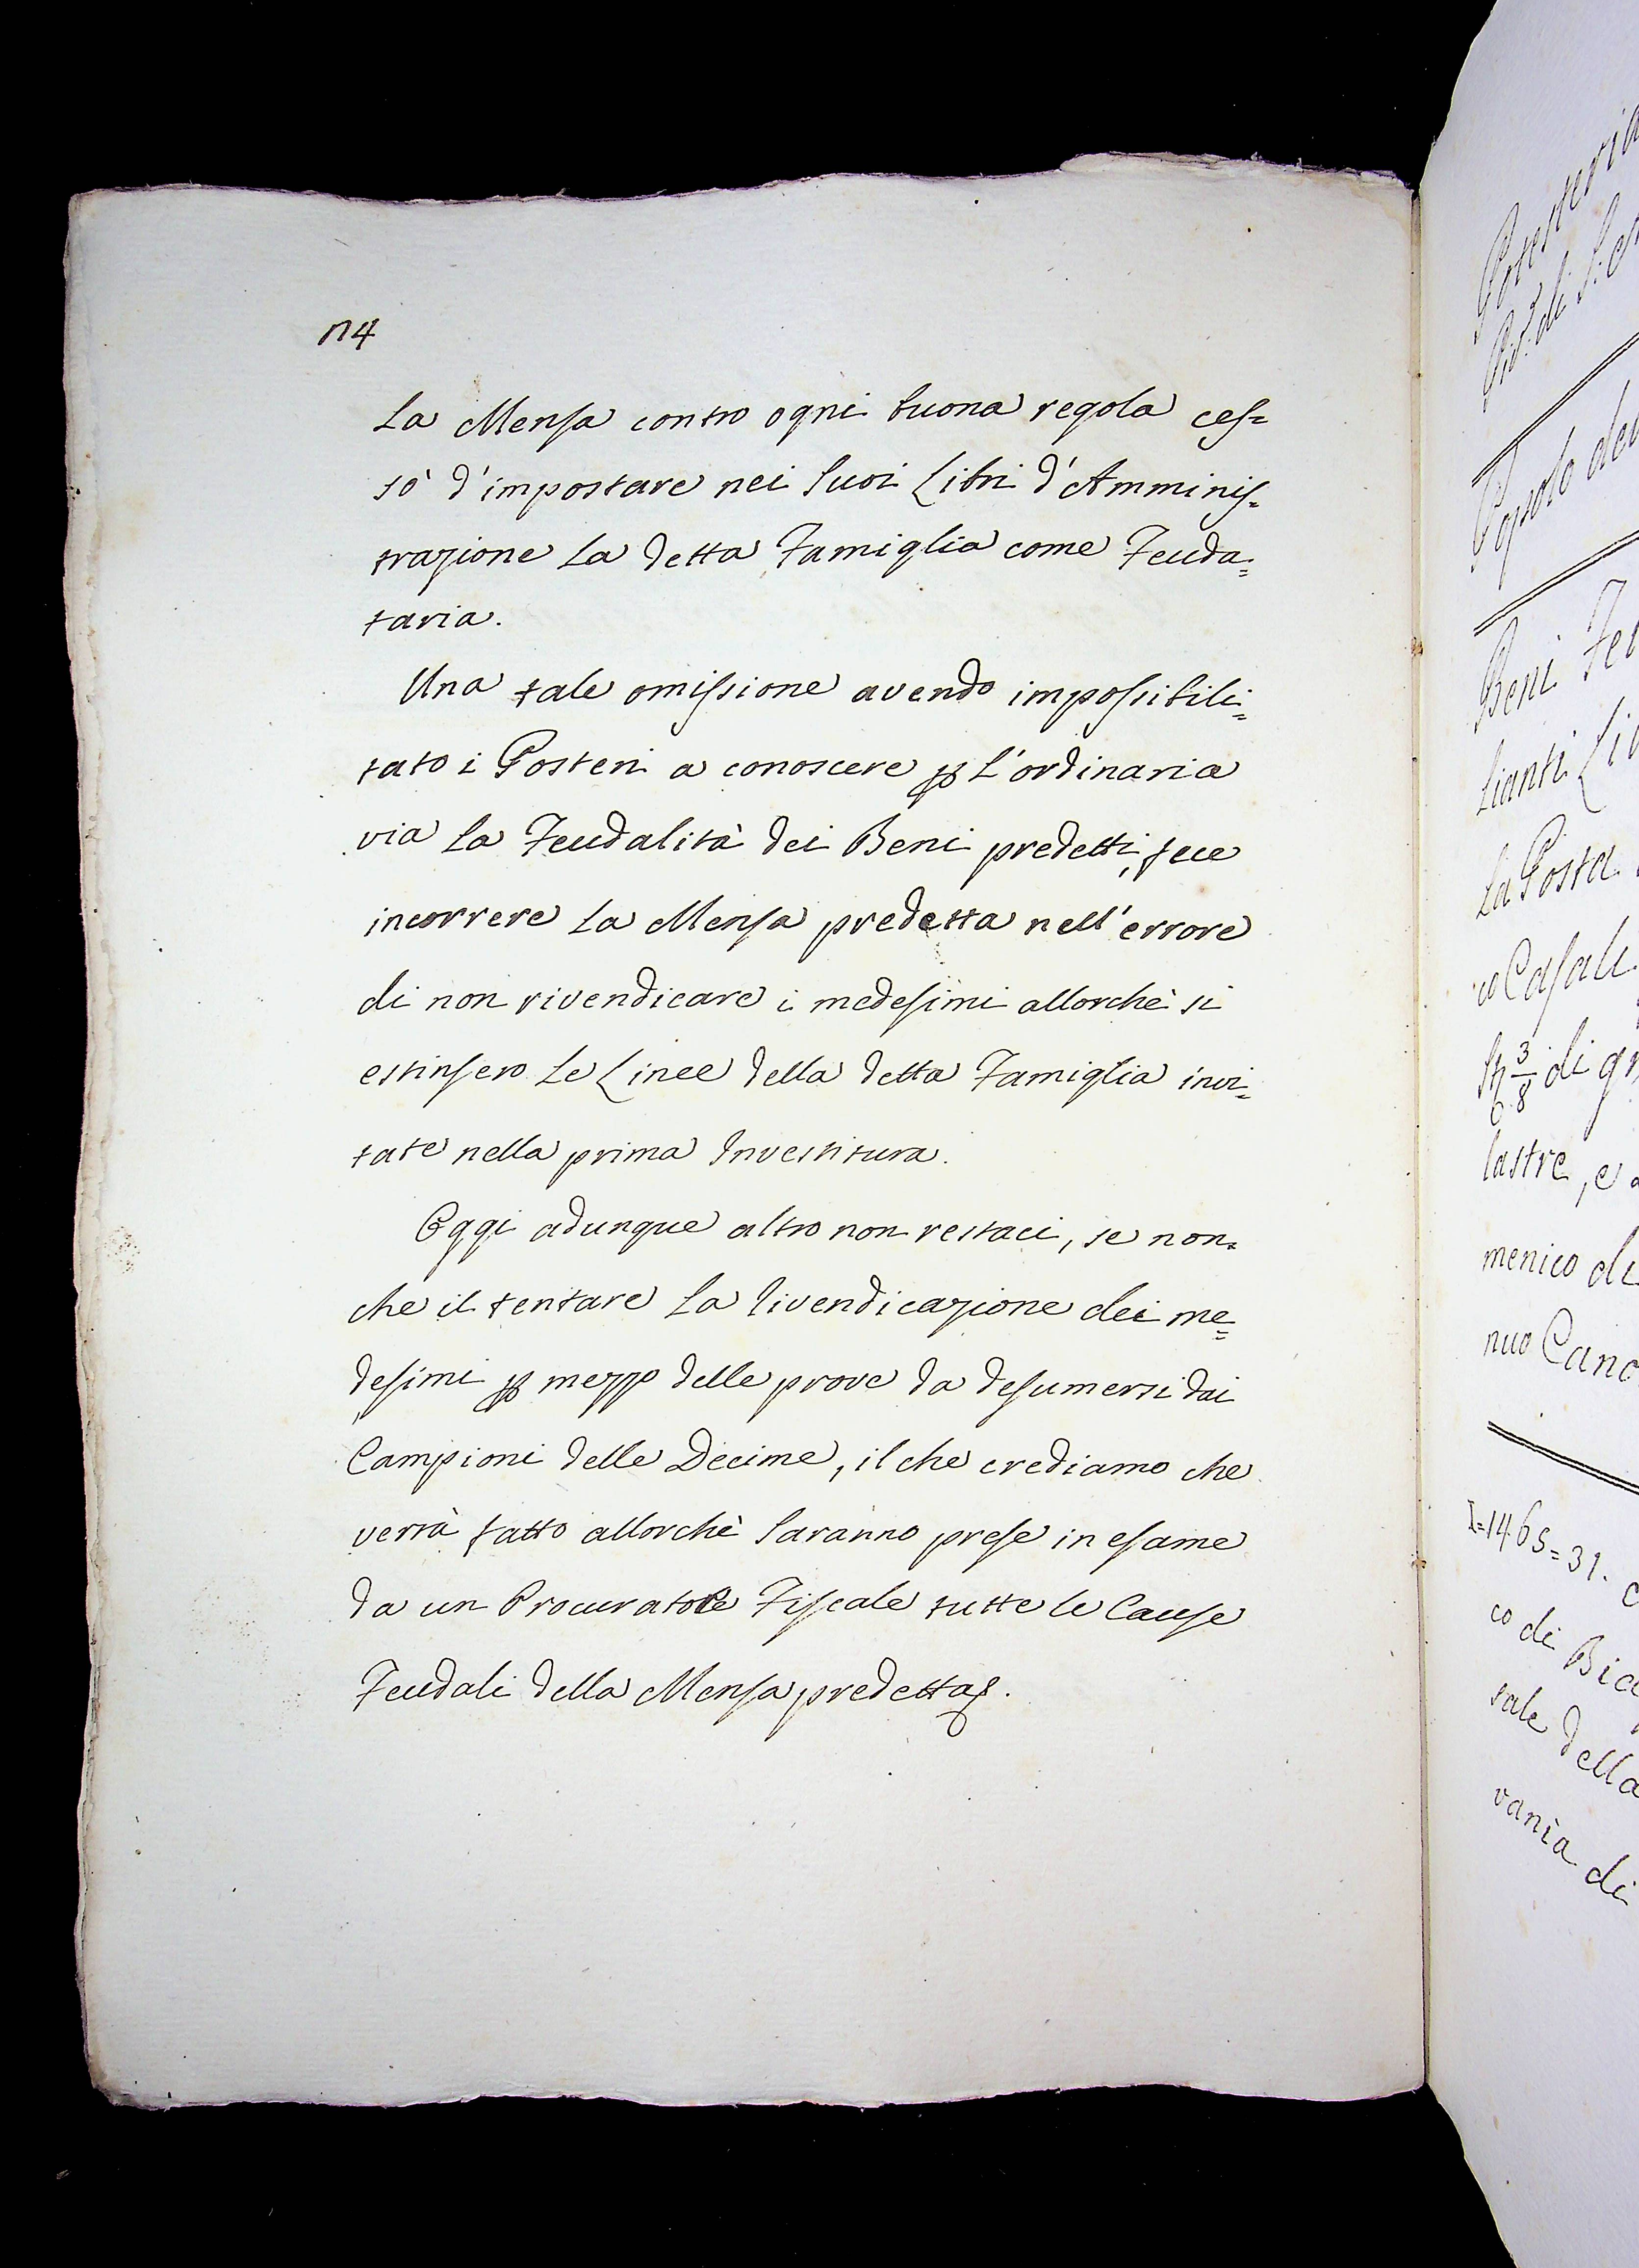 114
La Mensa contro ogni buona regola ces=
sò d'impostare nei Suoi Libri d'Amminis=
trazione La detta Famiglia come Feuda=
taria.
Una tale omissione avendo impossibili=
tato i Posteri a conoscere ꝑ L'ordinaria
via La Feudalità dei Beni predetti, fece
incorrere La Mensa predetta nell'errore
di non rivendicare i medesimi allorchè si
estinsero Le Linee della detta Famiglia invi=
tate nella prima Investitura.
Oggi adunque altro non restaci, se non=
che il tentare La rivendicazione dei me=
desimi ꝑ mezzo delle prove da desumersi dai
Campioni delle Decime, il che crediamo che
verrà fatto allorchè Saranno prese in esame
da un Procuratore Fiscale tutte le Cause
Feudali della Mensa predetta.
Popolo
Beni
La Posta
co Casale
3/8 di
lastre, e
menico
nuo
1465=31.
co di
tale della
vania di